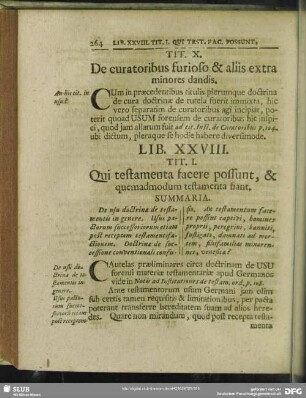 264 LIB. XXVIII. TIT. I. QUI TEST. FAC. POSSUNT,
TIT. X.
De curatoribus furioso & aliis extra
minores dandis.
An hic tit. in
usu?
CUm in præcedentibus titulis plerumque doctrina
de cura doctrinæ de tutela fuerit immixta, hic
vero separatim de curatoribus agi incipiat, po-
terit quoad USUM forensem de curatoribus hic inspi-
ci, quod jam allatum fuit ad tit. Inst. de Curatoribus p.
ubi dictum, pleraque se hodie habere diversimode.
LIB. XXVIII.
TIT. I.
Qui testamenta facere possunt, &
quemadmodum testamenta fiant,
SUMMARIA.
De usu doctrinæ de testa-
mentis in genere. Usus pa-
ctorum successoriorum etiam
post receptam testamentifa-
ctionem. Doctrina de suc-
cessione conventionali confu-
sa. An testamentum face-
re possint captivi, homines
proprii, peregrini, banniti,
fustigati, damnati ad mor-
tem, filiifamilias minoren-
nes, veneficæ?
De usu do-
ctrinæ de te-
stamentis in
genere.
Usus pacto-
rum succes-
soriorum etiam
post receptam
CAutelas præliminares circa doctrinam de USU
forensi materiæ testamentariæ apud Germanos
vide in Notis ad Institutiones de testam. ord. p. 108.
Ante testamentorum usum Germani jam olim
sub certis tamen requisitis & limitationibus, per pacta
poterant transferre hereditatem suam ad alios here-
des. Quare non mirandum, quod post recepta testa-
menta
SLUB